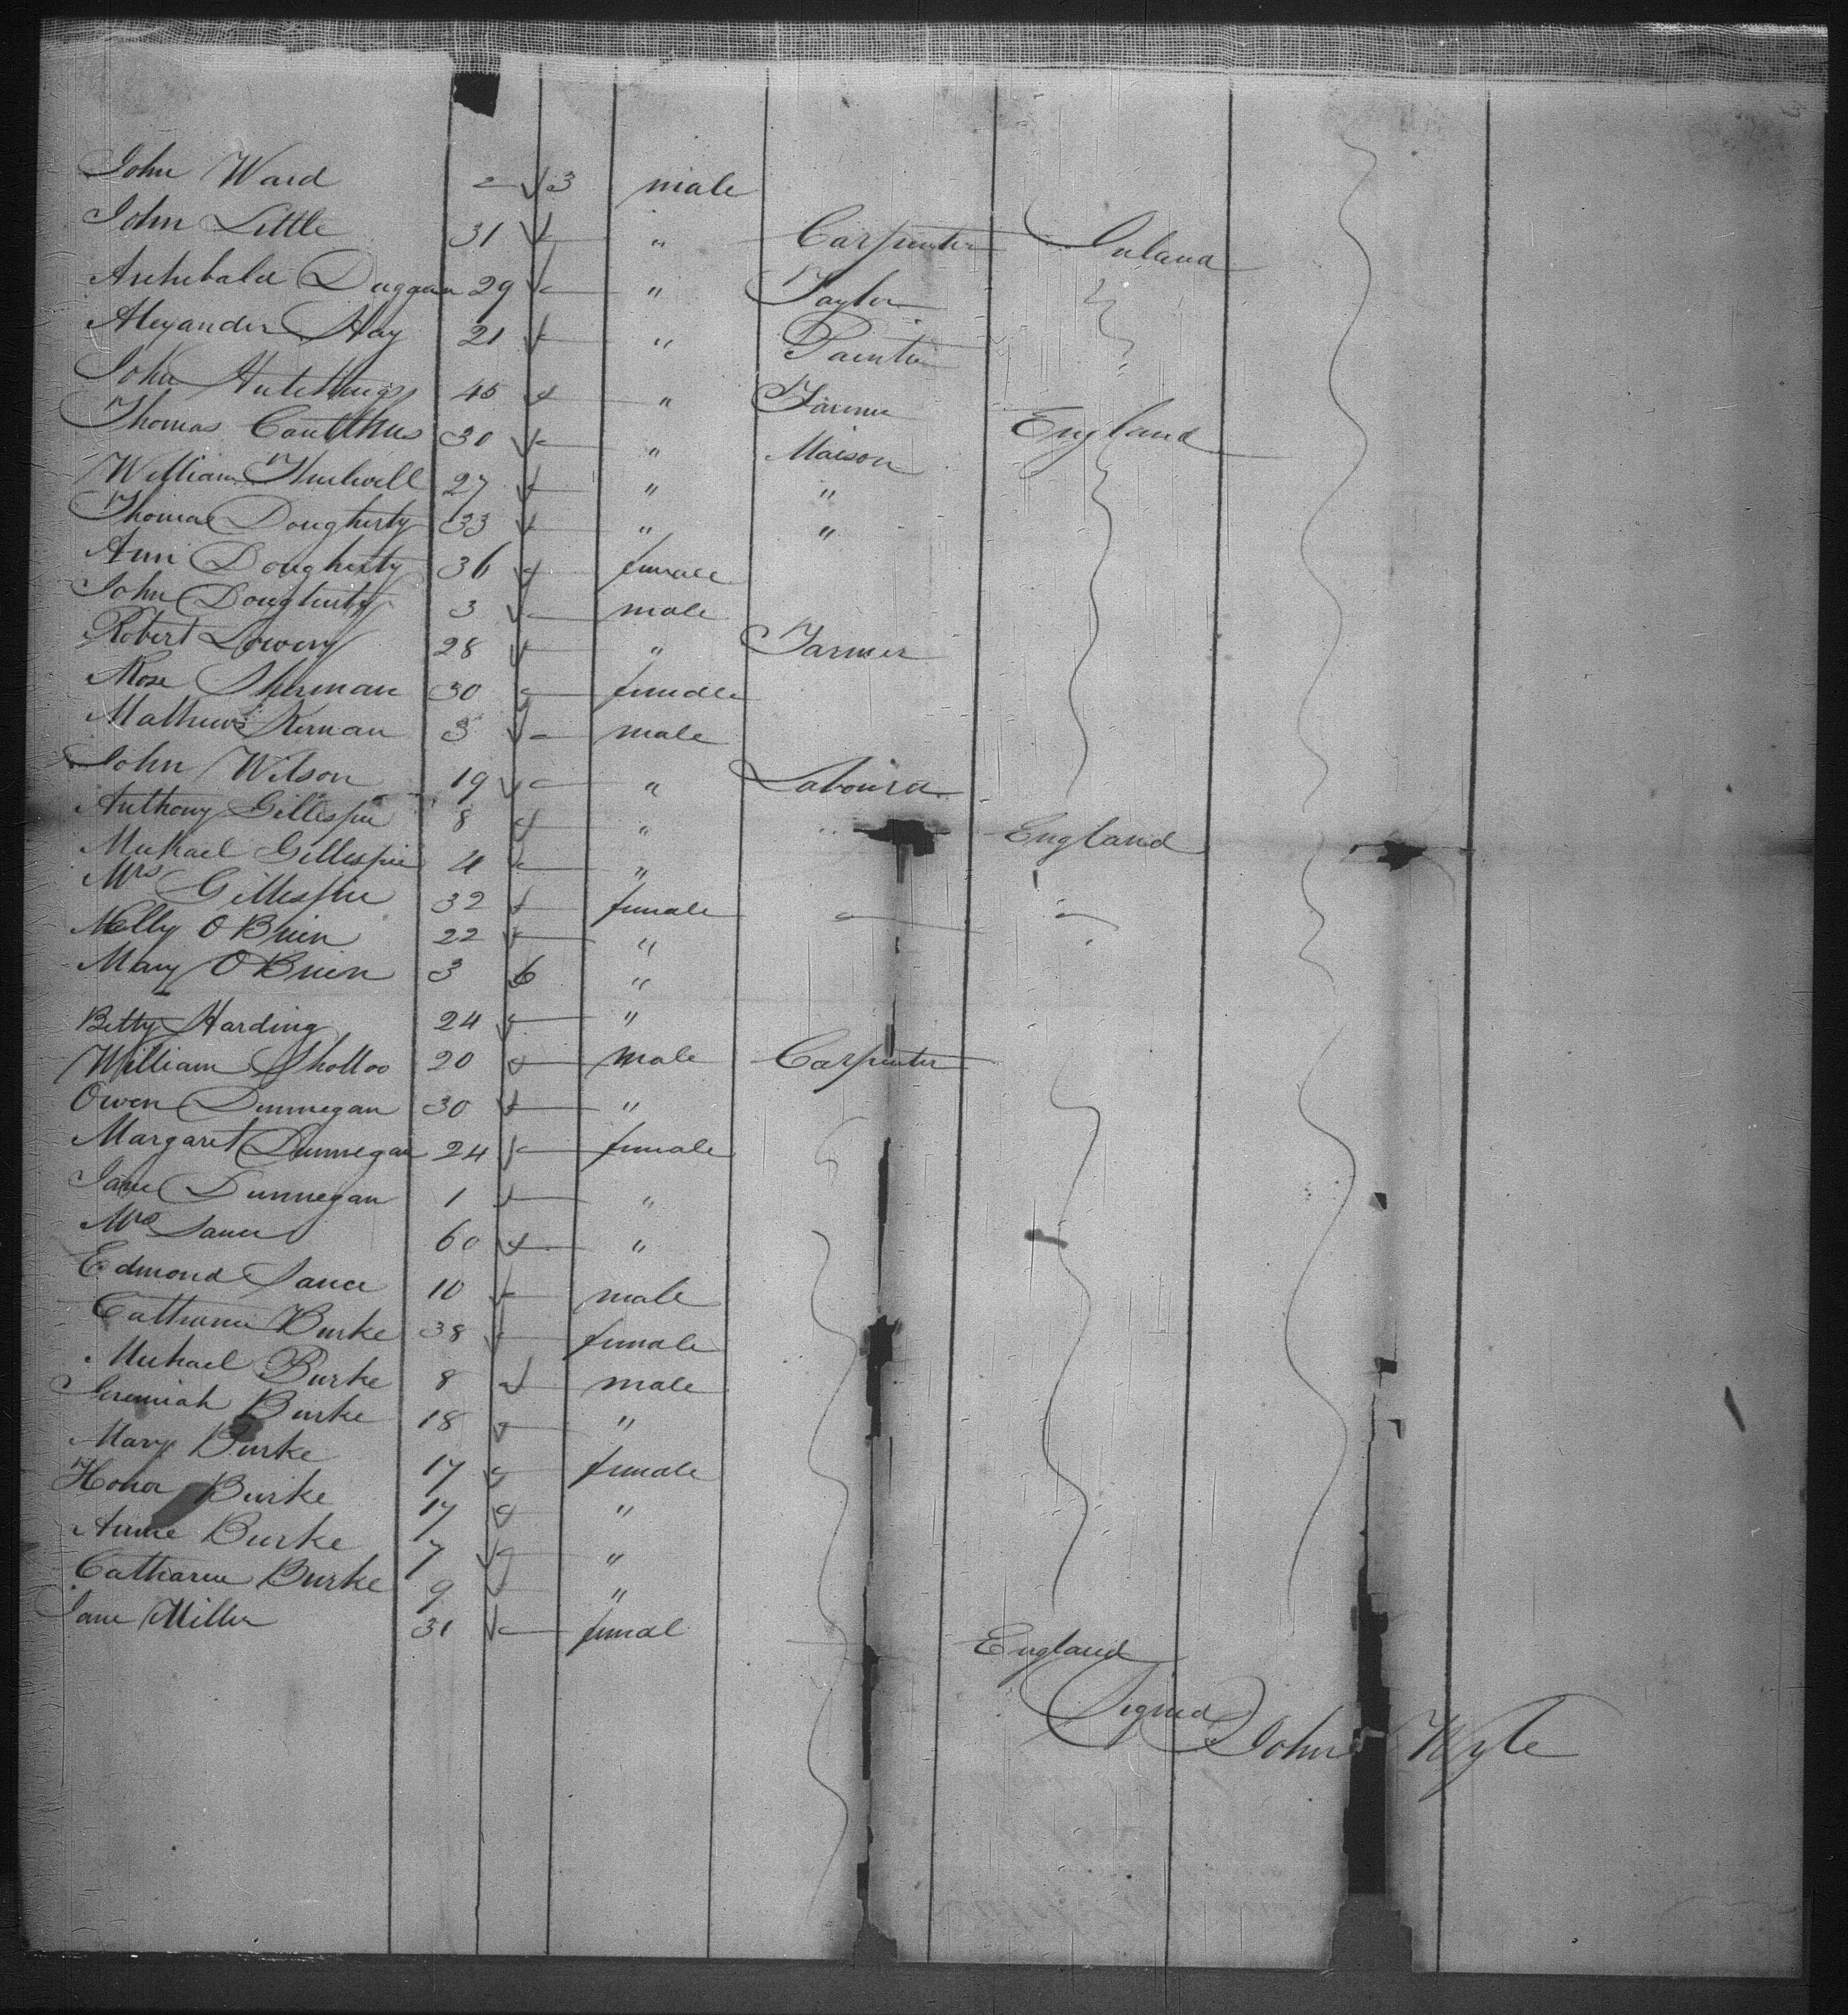 John Ward - 3 male
John Little 31 - " Carpenter Ireland
Archibald Duggan 29 - " Taylor
Alexander Hay 21 - " Painter
John Hutchings 45 - " Farmer
Thomas 30 - " Maison England
William 27 - " "
Thomas Dougherty 33 - " "
Ann Dougherty 36 - female
John Dougherty 3 - male
Robert Lowery 28 - " Farmer
Rose Sherman 30 - female
Mathew Kernan 3 - male
John Wilson 19 - " Labourer
Anthony Gillespie 8 - " England
Michael Gillespie 4 - "
Mrs Gillespie 32 - female
Nelly O Brien 22 - "
Mary O Brien 3 6 "
Betty Harding 24 - "
William 20 - male Carpenter
Owen Dunnegan 30 - "
Margaret Dunnegan 24 - female
Jane Dunnegan 1 - "
Mrs 60 - "
Edmond 10 - male
Catharine Burke 38 - female
Michael Burke 8 - male
Jeremiah Burke 18 - "
Mary Burke 17 - female
Honor Burke 17 - "
Anne Burke 7 - "
Catharine Burke 9 - "
Jane Miller 31 - femal England
Signed John Wyle